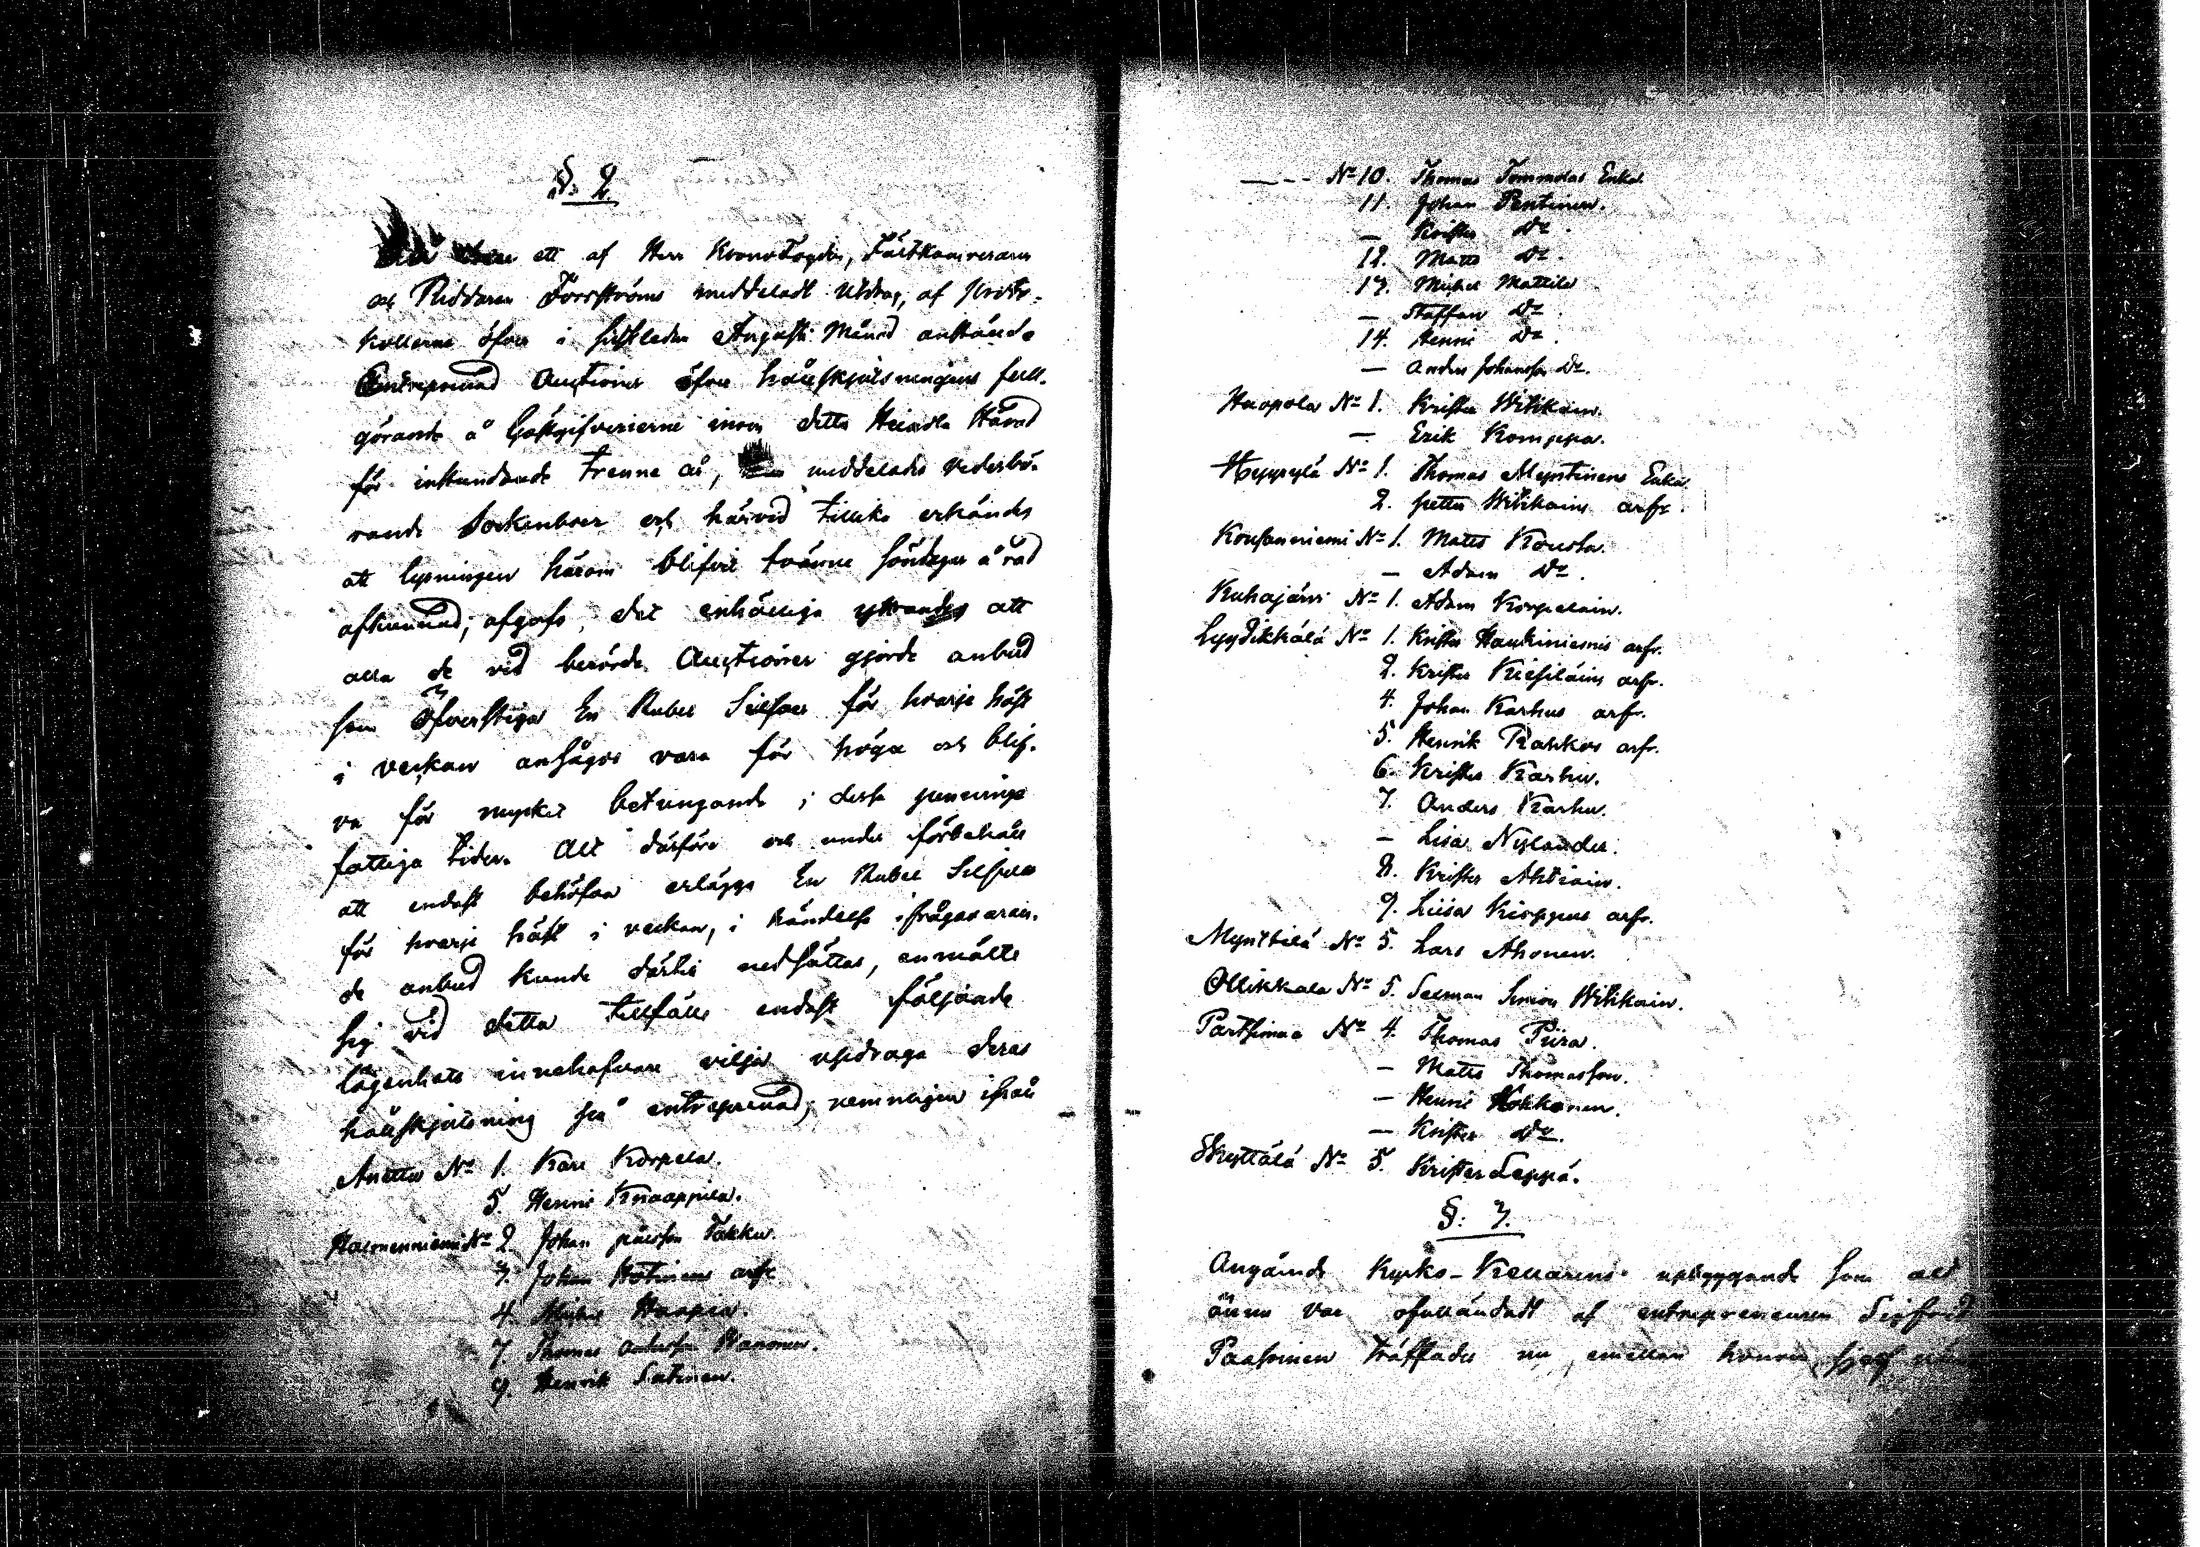 §: 2.
ett af Herr KronoFogden, Fältkamreraren
och Riddaren Forsströms meddeladt Utdrag, af proto-
kollerne öfver i sistleden Augusti Månad anstände
Entreprenad Auctioner öfver hållskjutsningens full-
görande å Gästgifverierne inom detta Heinola Härad
för instundande trenne år, meddelades vederbö-
rande Sockenboer och härvid tillika erkändes
att lysningen härom blifvit tvänne söndagar å rad
afkunnad; afgafs det enhälliga yttrandet att
alla de vid berörde Auctioner gjorde anbud
som öfverstiga En Rubel Silfver för hvarje häst
i veckan ansågos vara för höga och blif-
va för mycket betungande i dessa penninge
fattiga tider. Allt därföre och under förbehåll
att endast behöfva erlägga En Rubel Silfver
för hvarje häst i veckan, i händelse ifrågavaran-
de anbud kunde därtill nedsättas, anmälte
sig vid detta tillfälle endast följande
lägenhets innehafvare vilja updraga deras
hållskjutsning på entreprenad, nemnligen ifrån
Anttu No 1. Karl Korpela.
5. Henric Knaappila.
Halmenniemi No 2. Johan pålsson Takku.
3. Johan Hotinens arfr.
4. Michel Haapia.
7. Thomas Andersson Wanonen.
9. Henrik Satinen.
——— No 10. Thomas Tommolas Enka.
11. Johan Penttinen.
— Krister Do.
12. Matts Do.
13. Michel Mattila.
— Staffan Do.
14. Henric Do.
— Anders Johansson Do.
Haapola No 1. Krister Witikain.
— Erik Komppa.
Hyyrylä No 1. Thomas Mynttinens Enka.
2. Petter Witikains arfr.
Kousaniemi No 1. Matts Kousa.
— Adam Do.
Kuhajärvi No 1. Adam Korpelain.
Lyydikkälä No 1. Krister Haukiniemis arfr.
2. Krister Kiesiläins arfr.
4. Johan Karhus arfr.
5. Henrik Raskos arfr.
6. Krister Karhu.
7. Anders Karhu.
— Lisa Nylander.
8. Krister Ahtiain.
9. Liisa Kieppus arfr.
Mynttilä No 5. Lars Ahonen.
Ollikkala No 5. Salman Simon Witikain.
Partsimaa No 4. Thomas Piira.
— Matts Thomasson.
— Henric Hokkanen.
— Krister Do.
Skyttälä No 5. Krister Leppä.
§: 3.
Angående Kyrko-Källarens upbyggande som ock
ännu var ofulländadt af entrepreneuren Sigfrid
Paasoinen träffades nu, emellan honom